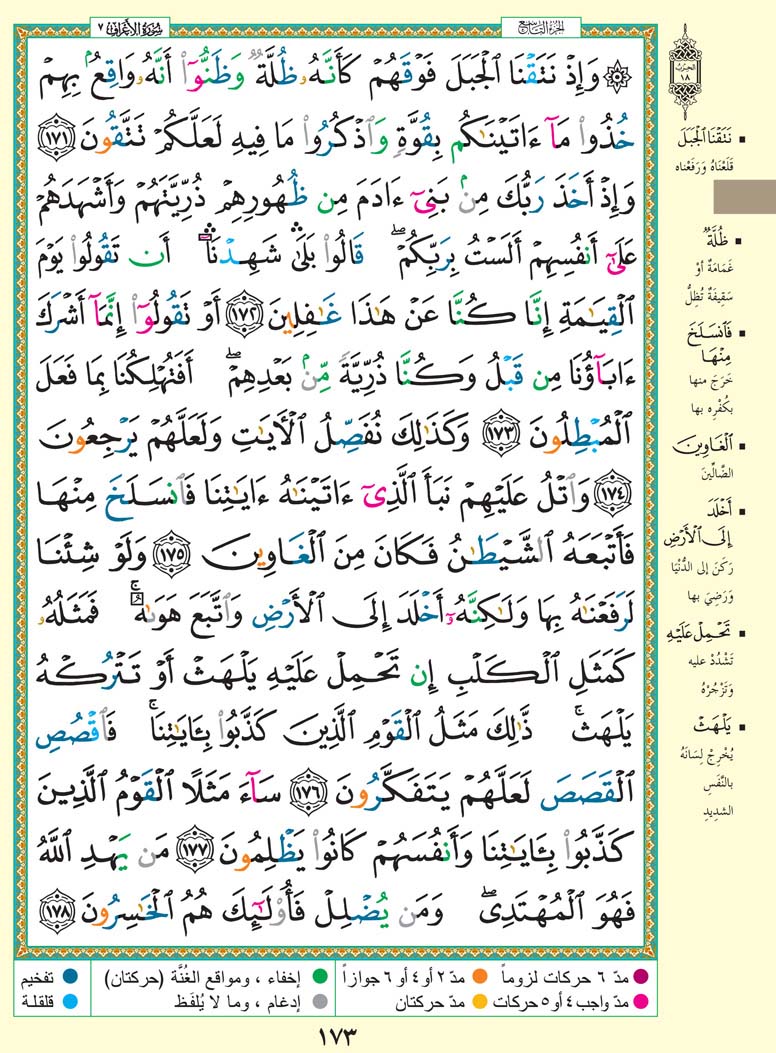 سُورَةُ الأَعْرَاف ٧
الجُزءُ التَّاسِعُ
الحِزْب
١٨
۞ وَإِذْ نَتَقْنَا ٱلْجَبَلَ فَوْقَهُمْ كَأَنَّهُۥ ظُلَّةٌ وَظَنُّوٓا۟ أَنَّهُۥ وَاقِعٌۢ بِهِمْ
خُذُوا۟ مَآ ءَاتَيْنَـٰكُم بِقُوَّةٍ وَٱذْكُرُوا۟ مَا فِيهِ لَعَلَّكُمْ تَتَّقُونَ ١٧١
وَإِذْ أَخَذَ رَبُّكَ مِنۢ بَنِىٓ ءَادَمَ مِن ظُهُورِهِمْ ذُرِّيَّتَهُمْ وَأَشْهَدَهُمْ
عَلَىٰٓ أَنفُسِهِمْ أَلَسْتُ بِرَبِّكُمْ ۖ قَالُوا۟ بَلَىٰ ۛ شَهِدْنَآ ۛ أَن تَقُولُوا۟ يَوْمَ
ٱلْقِيَـٰمَةِ إِنَّا كُنَّا عَنْ هَـٰذَا غَـٰفِلِينَ ١٧٢ أَوْ تَقُولُوٓا۟ إِنَّمَآ أَشْرَكَ
ءَابَآؤُنَا مِن قَبْلُ وَكُنَّا ذُرِّيَّةً مِّنۢ بَعْدِهِمْ ۖ أَفَتُهْلِكُنَا بِمَا فَعَلَ
ٱلْمُبْطِلُونَ ١٧٣ وَكَذَٰلِكَ نُفَصِّلُ ٱلْـَٔايَـٰتِ وَلَعَلَّهُمْ يَرْجِعُونَ
١٧٤ وَٱتْلُ عَلَيْهِمْ نَبَأَ ٱلَّذِىٓ ءَاتَيْنَـٰهُ ءَايَـٰتِنَا فَٱنسَلَخَ مِنْهَا
فَأَتْبَعَهُ ٱلشَّيْطَـٰنُ فَكَانَ مِنَ ٱلْغَاوِينَ ١٧٥ وَلَوْ شِئْنَا
لَرَفَعْنَـٰهُ بِهَا وَلَـٰكِنَّهُۥٓ أَخْلَدَ إِلَى ٱلْأَرْضِ وَٱتَّبَعَ هَوَىٰهُ ۚ فَمَثَلُهُۥ
كَمَثَلِ ٱلْكَلْبِ إِن تَحْمِلْ عَلَيْهِ يَلْهَثْ أَوْ تَتْرُكْهُ
يَلْهَث ۚ ذَّٰلِكَ مَثَلُ ٱلْقَوْمِ ٱلَّذِينَ كَذَّبُوا۟ بِـَٔايَـٰتِنَا ۚ فَٱقْصُصِ
ٱلْقَصَصَ لَعَلَّهُمْ يَتَفَكَّرُونَ ١٧٦ سَآءَ مَثَلًا ٱلْقَوْمُ ٱلَّذِينَ
كَذَّبُوا۟ بِـَٔايَـٰتِنَا وَأَنفُسَهُمْ كَانُوا۟ يَظْلِمُونَ ١٧٧ مَن يَهْدِ ٱللَّهُ
فَهُوَ ٱلْمُهْتَدِى ۖ وَمَن يُضْلِلْ فَأُو۟لَـٰٓئِكَ هُمُ ٱلْخَـٰسِرُونَ ١٧٨
▪ نَتَقْنَا ٱلْجَبَلَ
قَلَعْنَاهُ وَرَفَعْناه
▪ ظُلَّةٌ
غَمَامَةٌ أوْ
سَقِيفَةٌ تُظِلُّ
▪ فَٱنسَلَخَ
مِنْهَا
خَرَجَ منها
بكُفْرِه بها
▪ ٱلْغَاوِينَ
الضَّالِّينَ
▪ أَخْلَدَ
إِلَى ٱلْأَرْضِ
رَكَنَ إلى الدُّنْيَا
وَرَضِيَ بها
▪ تَحْمِلْ عَلَيْهِ
تَشْدُدْ عليه
وَتَزْجُرْهُ
▪ يَلْهَثْ
يُخْرِجْ لِسَانَهُ
بالنَّفَسِ
الشديدِ
مدّ ٦ حركات لزوماً
مدّ ٢ أو ٤ أو ٦ جوازاً
إخفاء ، ومواقع الغُنَّة (حركتان)
تفخيم
مدّ واجب ٤ أو ٥ حركات
مدّ حركتان
إدغام ، وما لا يُلفَظ
قلقلة
١٧٣